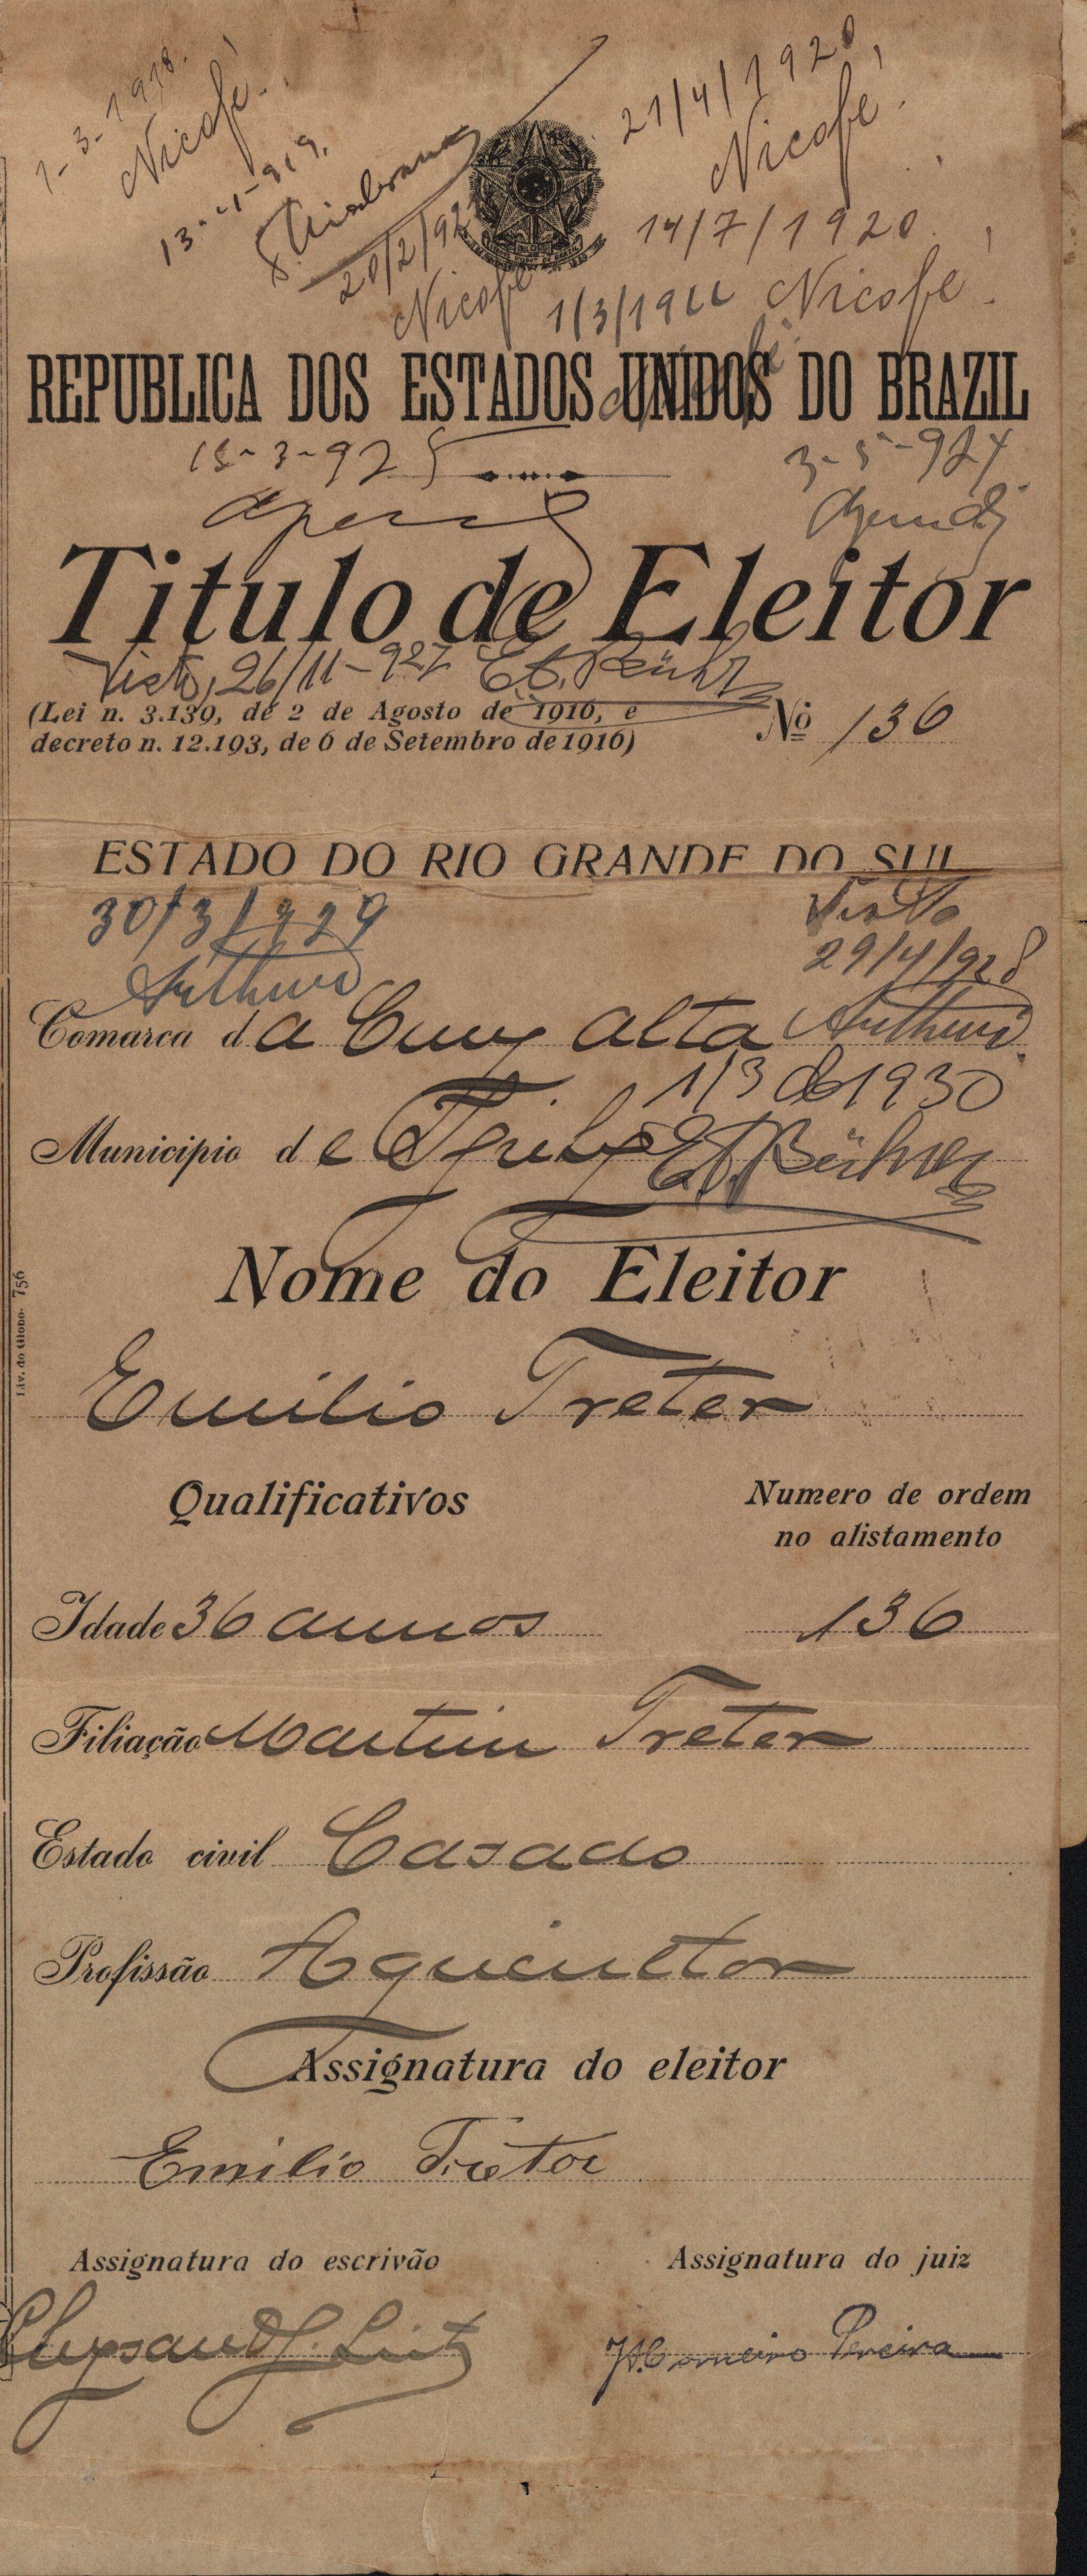 1-3-1918.
Nicofé
13-4-919.
20/2/92
Nicofé
21/4/1920
Nicofé
14/7/1920
Nicofé
1/3/1922
REPUBLICA DOS ESTADOS UNIDOS DO BRAZIL
15-3-925
3-5-924
Titulo de Eleitor
Visto, 26/11-927 Et. Bühr
(Lei n. 3.139, de 2 de Agosto de 1916, e
decreto n. 12.193, de 6 de Setembro de 1916)
Nº 136
ESTADO DO RIO GRANDE DO SUL
30/3/929
Visto
29/4/928
Comarca da Cruz Alta
1/3 de 1930
Municipio de Ijuhy
Nome do Eleitor
Emilio Treter
Qualificativos
Numero de ordem
no alistamento
Idade 36 annos
136
Filiação Martin Treter
Estado civil Casado
Profissão Agricultor
Assignatura do eleitor
Emilio Treter
Assignatura do escrivão
Assignatura do juiz
Pereira
Liv. do Globo- 756